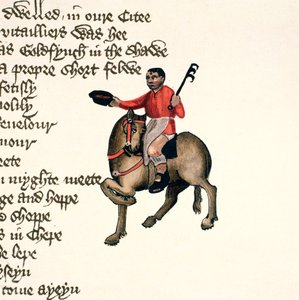 dwelled in oure Citee
vitailliers was hee
as Goldfynch in the shawe
a propre short felawe
fetisly
olily
Reuelour
mour
eete
myghte meete
ge and hoppe
shoppe
in Chepe
he lepe
yseyn
come ayeyn